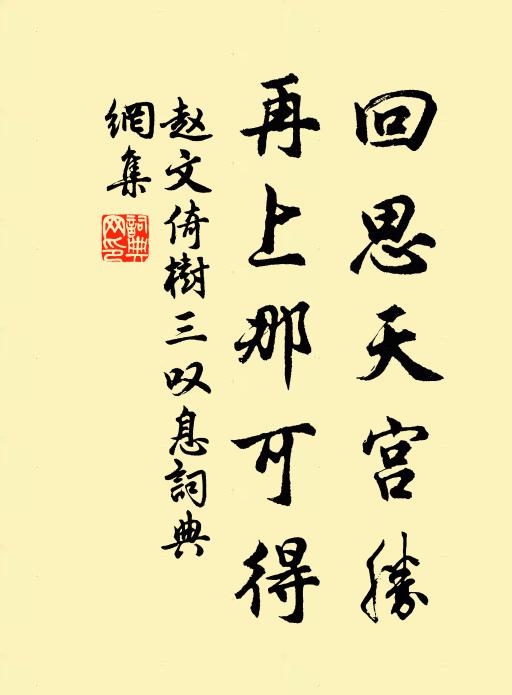 回思天宫勝
再上那可得
赵文倚樹三叹息詞典
網集
詞典
网印